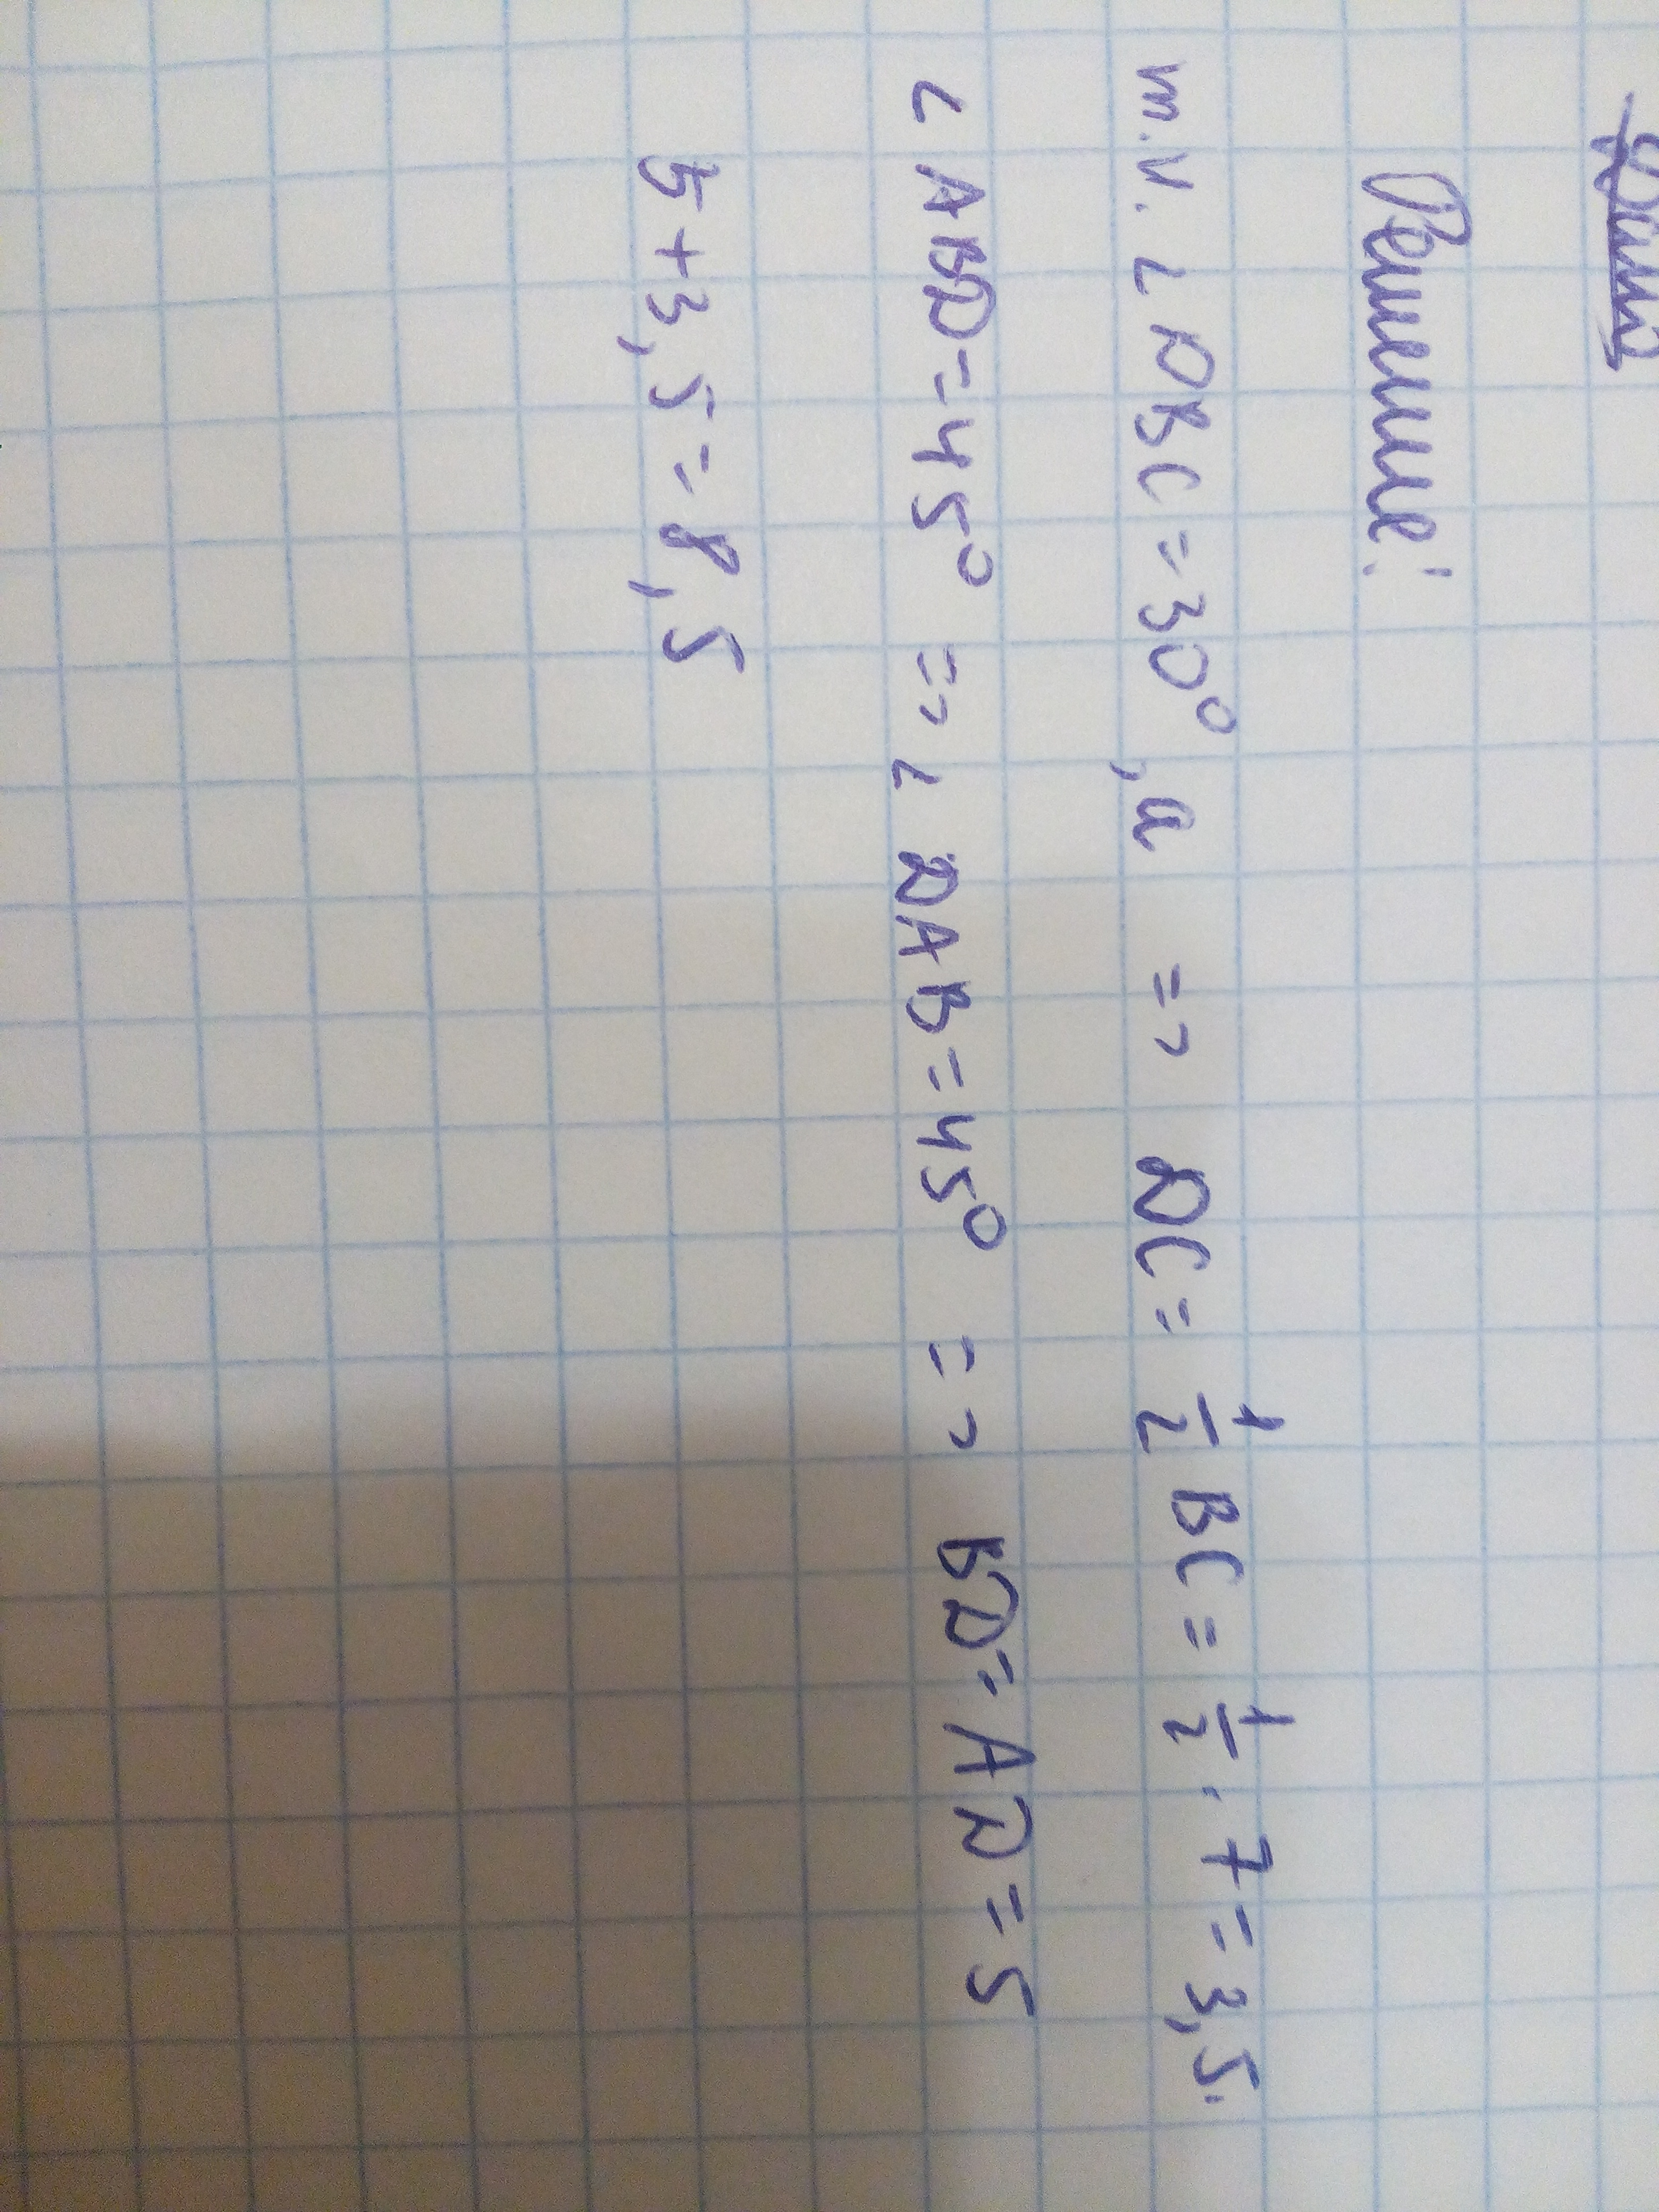 Решение:
т.к. ∠ DBC = 30°, а => DC = 1/2 BC = 1/2 · 7 = 3,5.
∠ ABD = 45° => ∠ DAB = 45° => BD = AD = 5
5 + 3,5 = 8,5